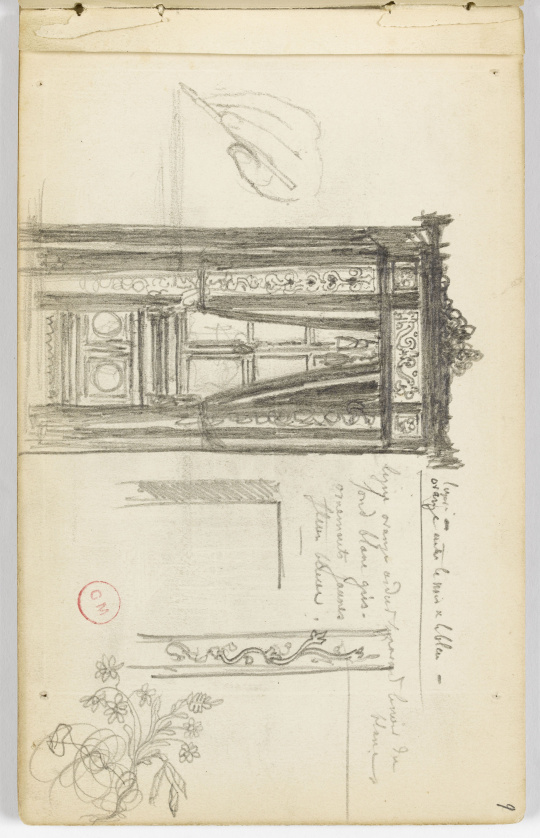 orange entre le noir & le bleu =
ligne orange le noir du
blanc
fond blanc gris.
ornements jaunes
fleurs bleues.
GM
9